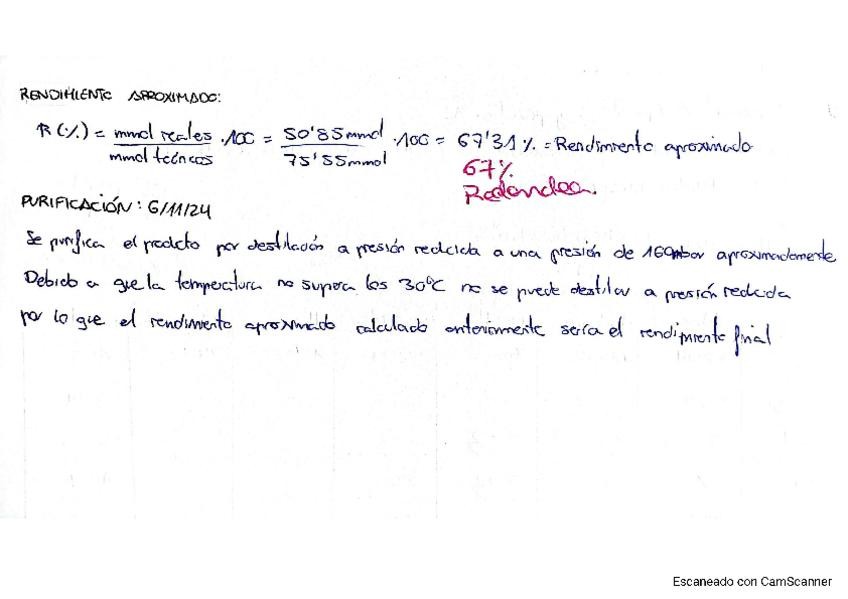 RENDIMIENTO APROXIMADO:
R (%) = mmol reales / mmol teóricos · 100 = 50'85 mmol / 75'55 mmol · 100 = 67'31 % = Rendimiento aproximado
67%
Redondea.
PURIFICACIÓN: 6/11/24
Se purifica el producto por destilación a presión reducida a una presión de 160mbar aproximadamente
Debido a que la temperatura no supera los 30ºC no se puede destilar a presión reducida
por lo que el rendimiento aproximado calculado anteriormente sería el rendimiento final
Escaneado con CamScanner